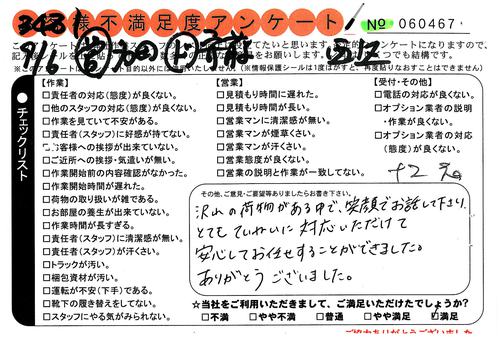 お客様不満足度アンケート
No 060467
【作業】
□責任者の対応(態度)が良くない。
□他のスタッフの対応(態度)が良くない。
□作業を見ていて不安がある。
□責任者(スタッフ)に好感が持てない。
□お客様への挨拶が出来ていない。
□ご近所への挨拶・気遣いが無い。
□作業開始前の内容確認がなかった。
□作業開始時間が遅れた。
□荷物の取り扱いが雑である。
□お部屋の養生が出来ていない。
□作業時間が長すぎる。
□責任者(スタッフ)に清潔感が無い。
□責任者(スタッフ)が汗くさい。
□トラックが汚い。
□梱包資材が汚い。
□運転が不安(下手)である。
□靴下の履き替えをしてない。
□スタッフにやる気がみられない。
【営業】
□見積もり時間に遅れた。
□見積もり時間が長い。
□営業マンに清潔感が無い。
□営業マンが煙草くさい。
□営業マンが汗くさい。
□営業態度が良くない。
□営業の説明と作業が一致してない。
【受付・その他】
□電話の対応が良くない。
□オプション業者の説明
・作業が良くない。
□オプション業者の対応
(態度)が良くない。
チェックリスト
その他、ご意見・ご要望等ありましたらお書き下さい。
沢山の荷物がある中で、笑顔でお話して下さり、
とてもていねいに対応いただけて
安心してお任せすることができました。
ありがとうございました。
☆当社をご利用いただきまして、ご満足いただけたでしょうか?
□不満 □やや不満 □普通 □やや満足 ☑満足
ご協力ありがとうございました